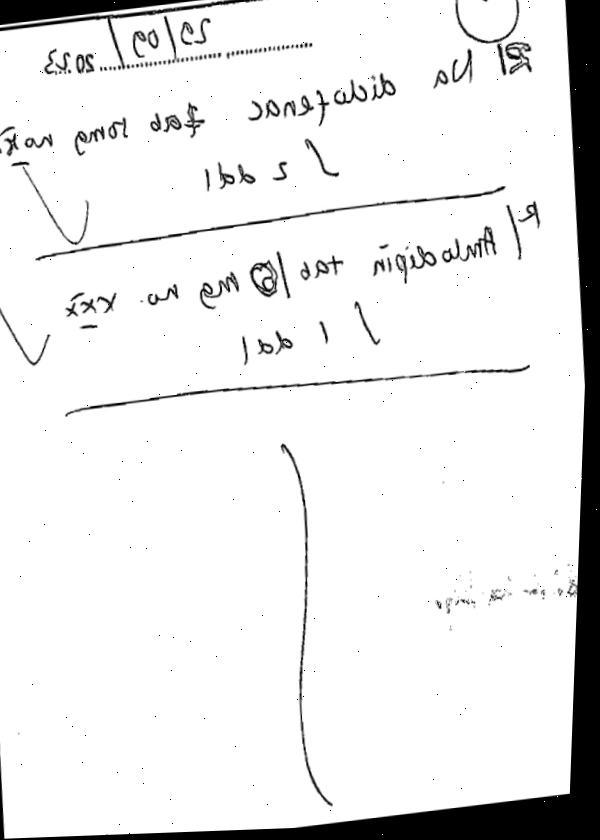 29/09/2023
R/ Na diclofenac tab 50mg no XX
ʃ 2 dd 1
R/ Amlodipin tab mg no. XXX
ʃ 1 dd 1